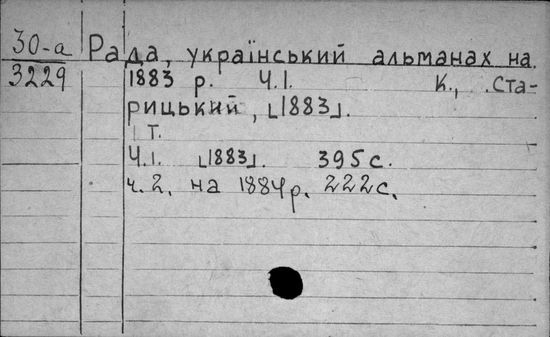 30-а Рада, український альманах на
3229 1883 р. Ч.І. К., Ста-
рицький, ⌊1883⌋.
Т.
Ч.І. ⌊1883⌋. 395 с.
ч. 2. на 1884 р. 222 с.